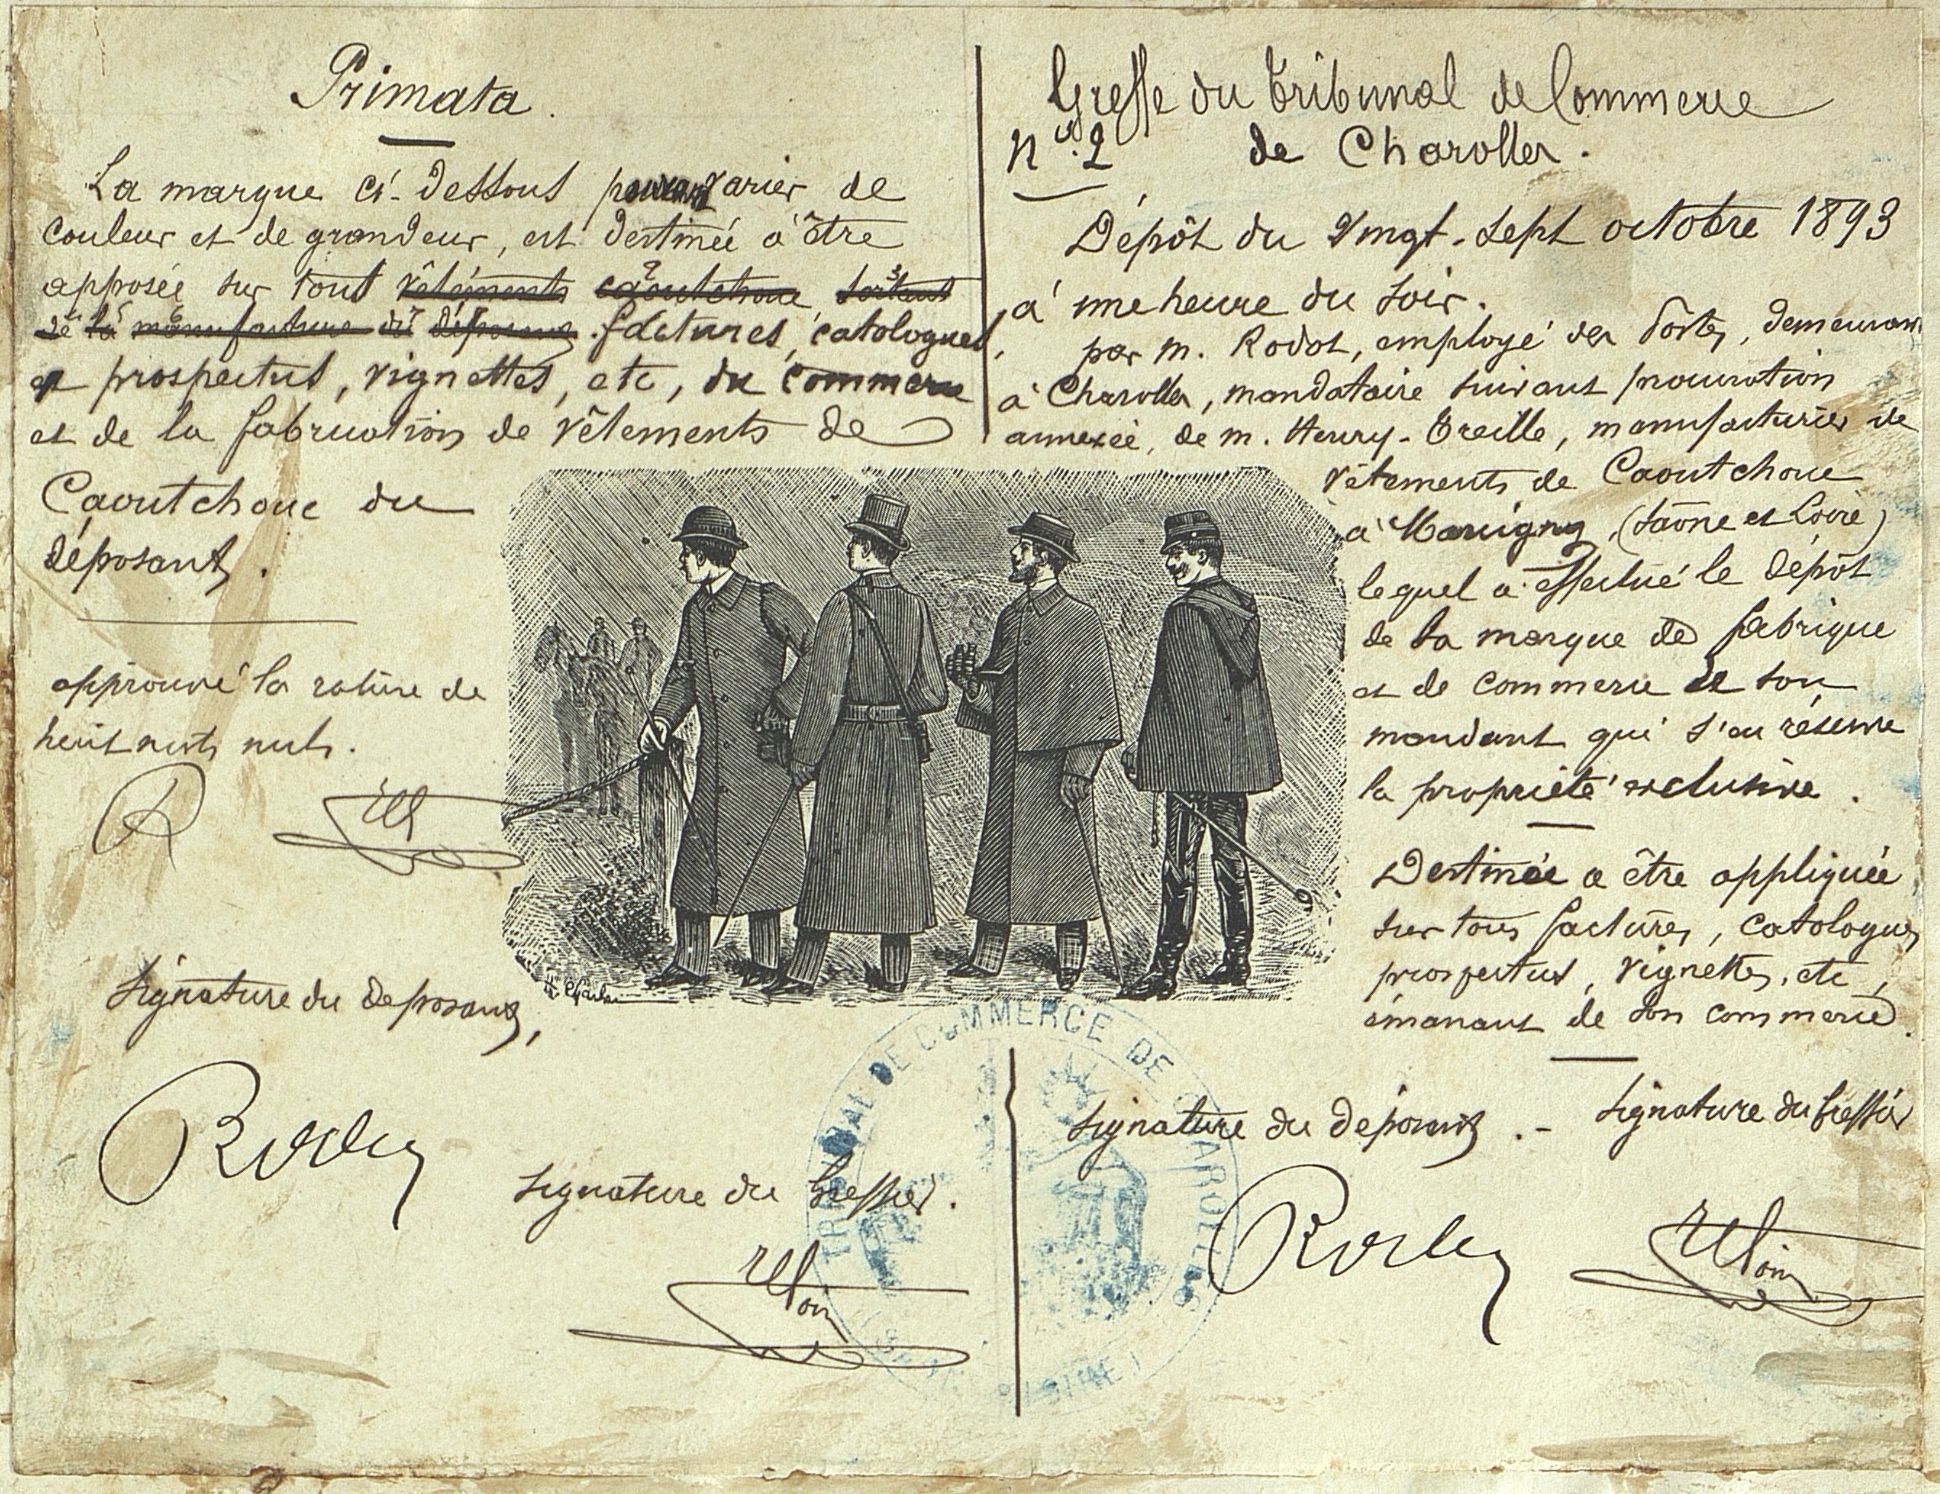 Primata.
La marque ci-dessous pouvant varier de
couleur et de grandeur, est destinée à être
apposée sur tout vêtements caoutchouc sortant
de la manufacture du déposant. factures, catalogues,
et prospectus, vignettes, etc, du commerce
et de la fabrication de vêtements de
Caoutchouc du
déposant.
approuvé la rature de
huit mots nuls.
R
Signature du déposant,
Signature du Greffier.
Greffe du Tribunal de Commerce
N° 2 de Charolles.
Dépôt du Vingt-sept octobre 1893
à une heure du soir.
par M. Rodot, employé des Postes, demeurant
à Charolles, mandataire suivant procuration
annexée, de M. Henry-Treille, manufacturier de
vêtements de Caoutchouc
à Marigny, (Saône et Loire)
lequel a effectué le dépôt
de la marque de fabrique
et de commerce de son
mandant qui s'en réserve
la propriété exclusive.
Destinée a être appliquée
sur tous factures, catalogues,
prospectus, vignettes, etc,
émanant de son commerce.
Signature du déposant. - Signature du Greffier
TRIBUNAL DE COMMERCE DE CHAROLLES